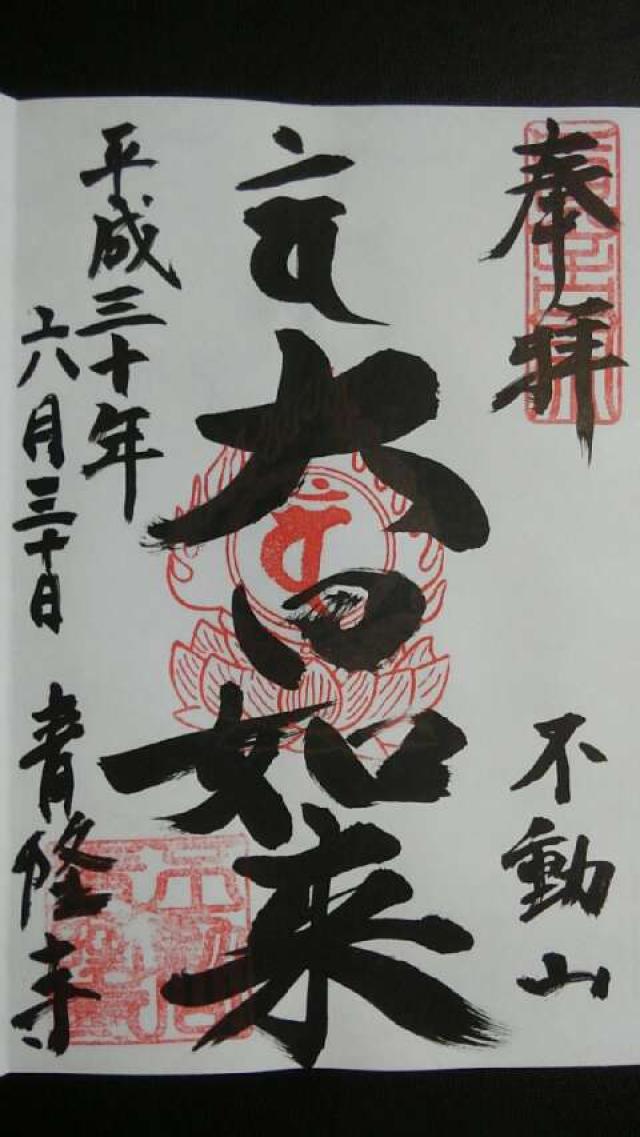 奉拝
不動山
大日如来
平成三十年
六月三十日 青隆寺